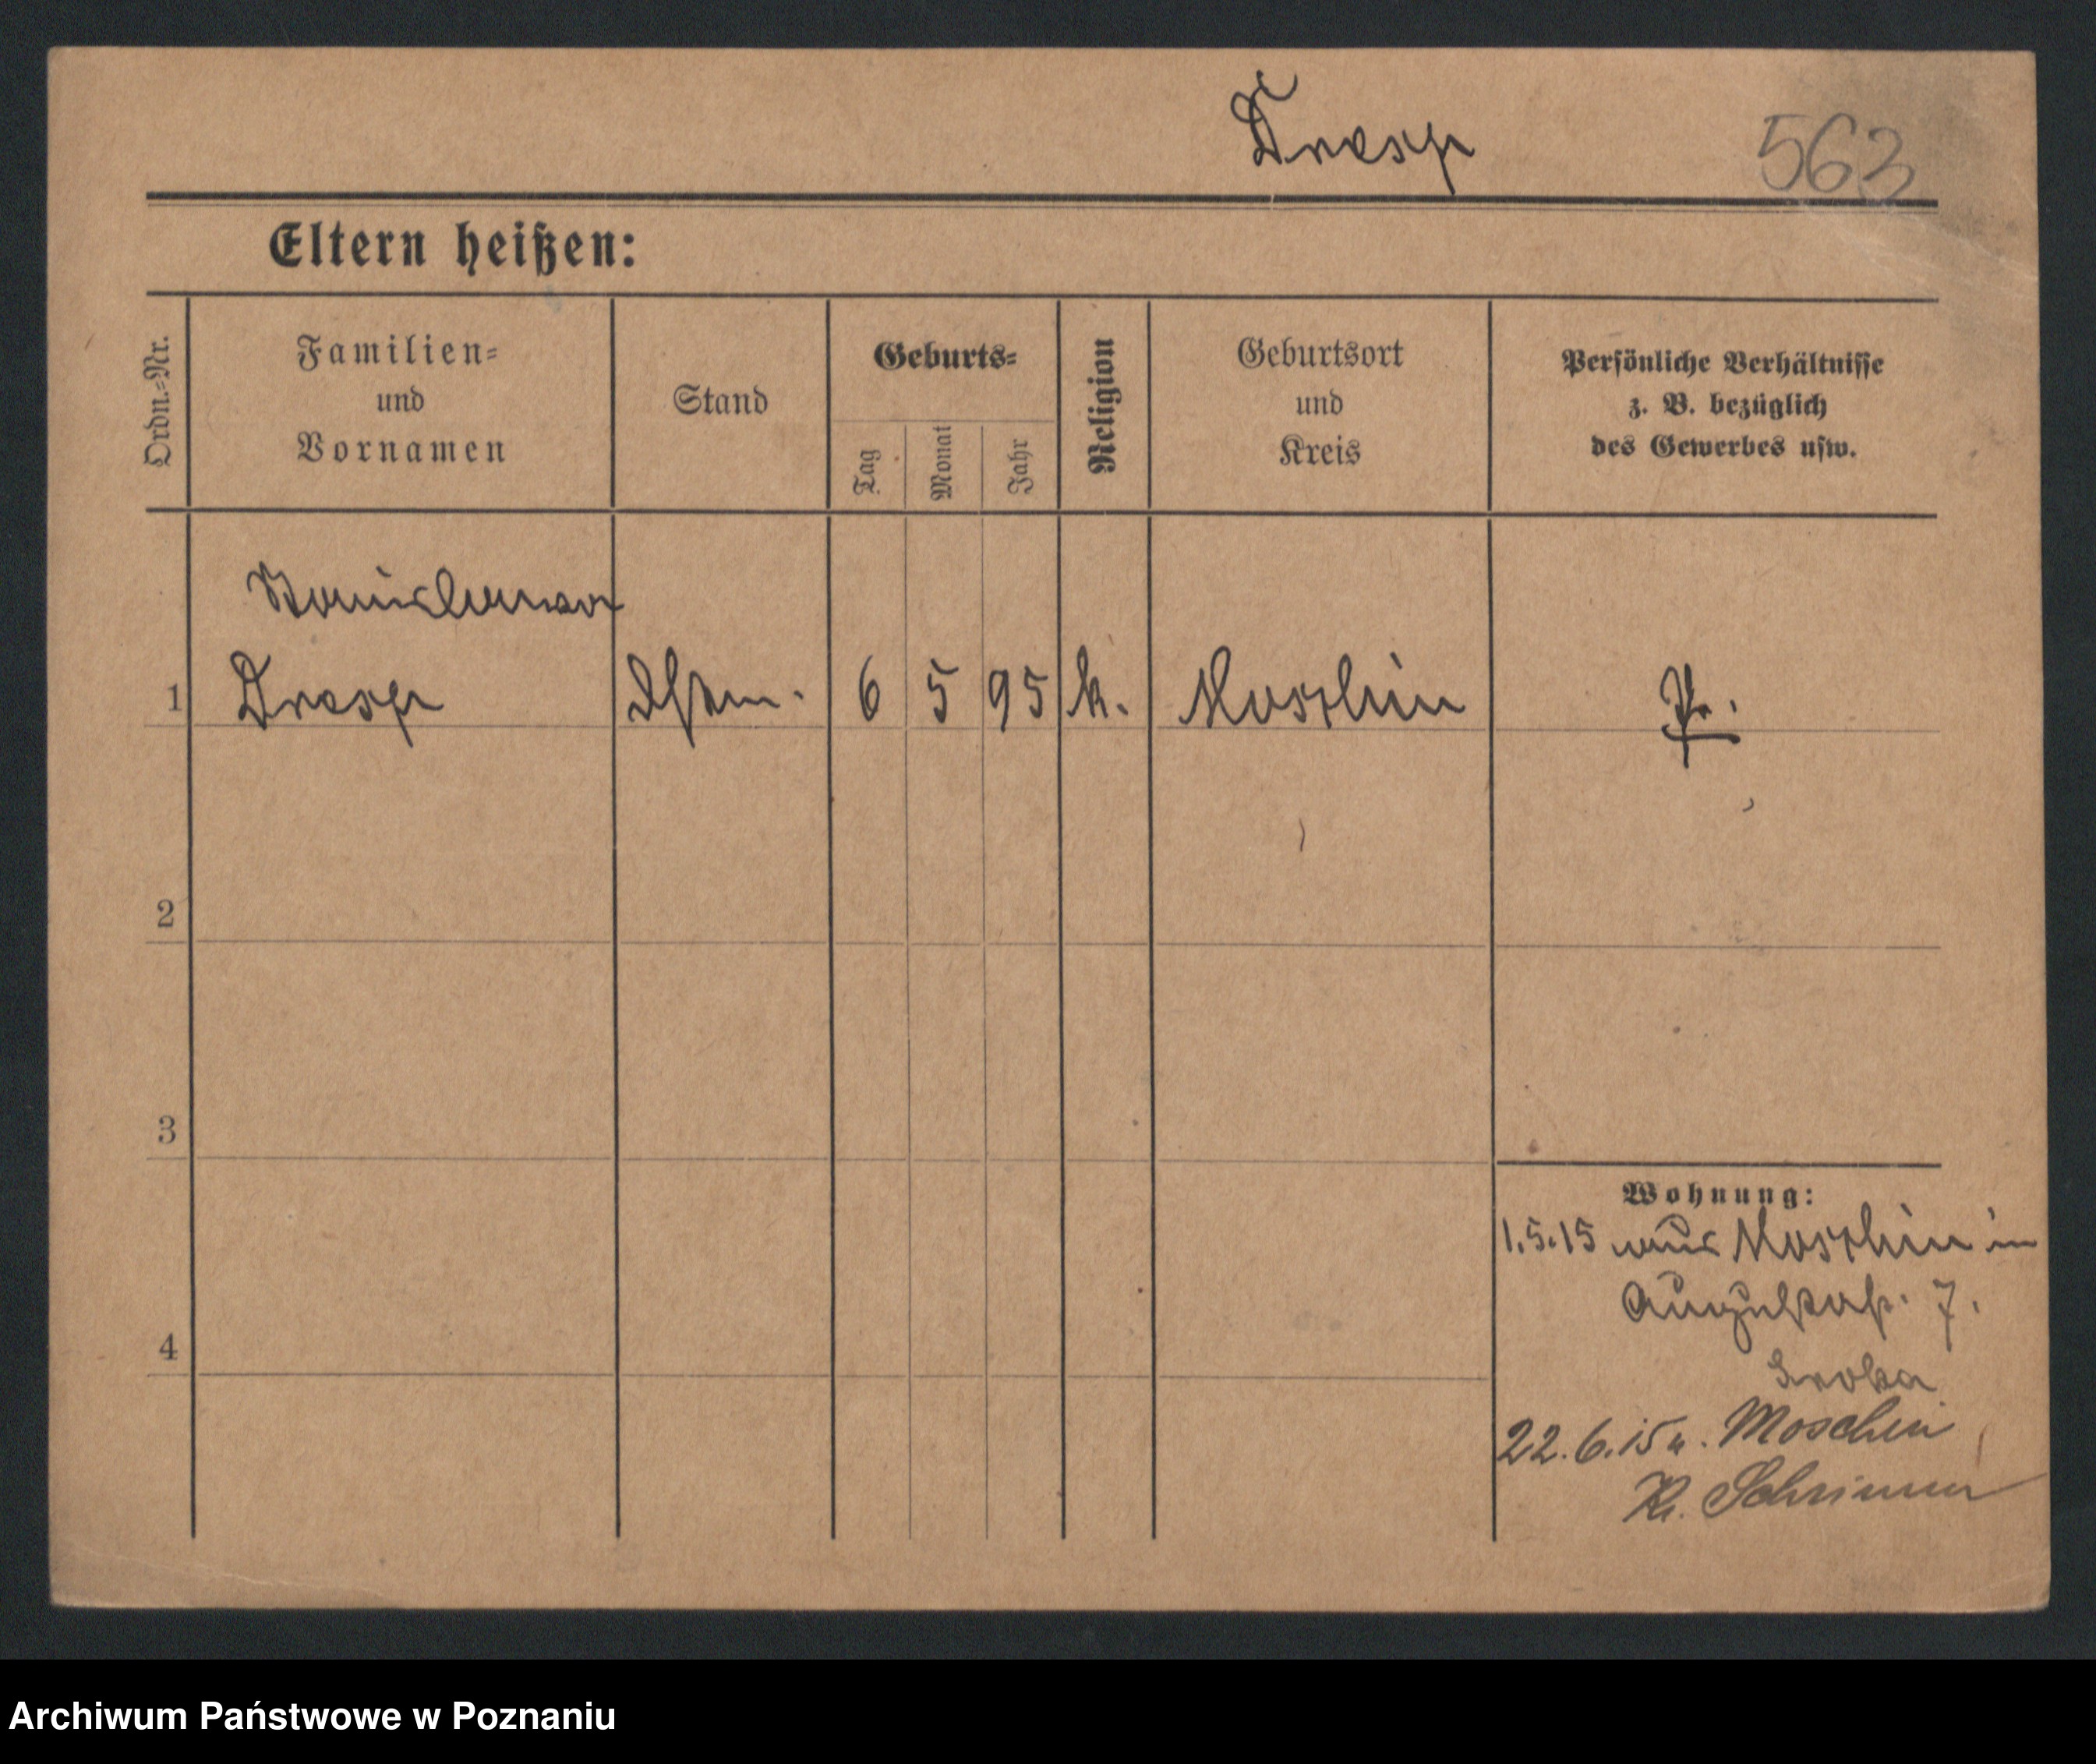 Dresp 563
Eltern heißen:
Ordn.-Nr.
Familien-
und
Vornamen
Stand
Geburts-
Tag
Monat
Jahr
Religion
Geburtsort
und
Kreis
Persönliche Verhältnisse
z. B. bezüglich
des Gewerbes usw.
Stanislawa
1 Dresp 6 5 95 k. Moschin Pr.
2
3
4
Wohnung:
1.5.15 aus Moschin in
Augustastr. 7.
22.6.15 n. Moschin
Kr. Schrimm
Archiwum Państwowe w Poznaniu